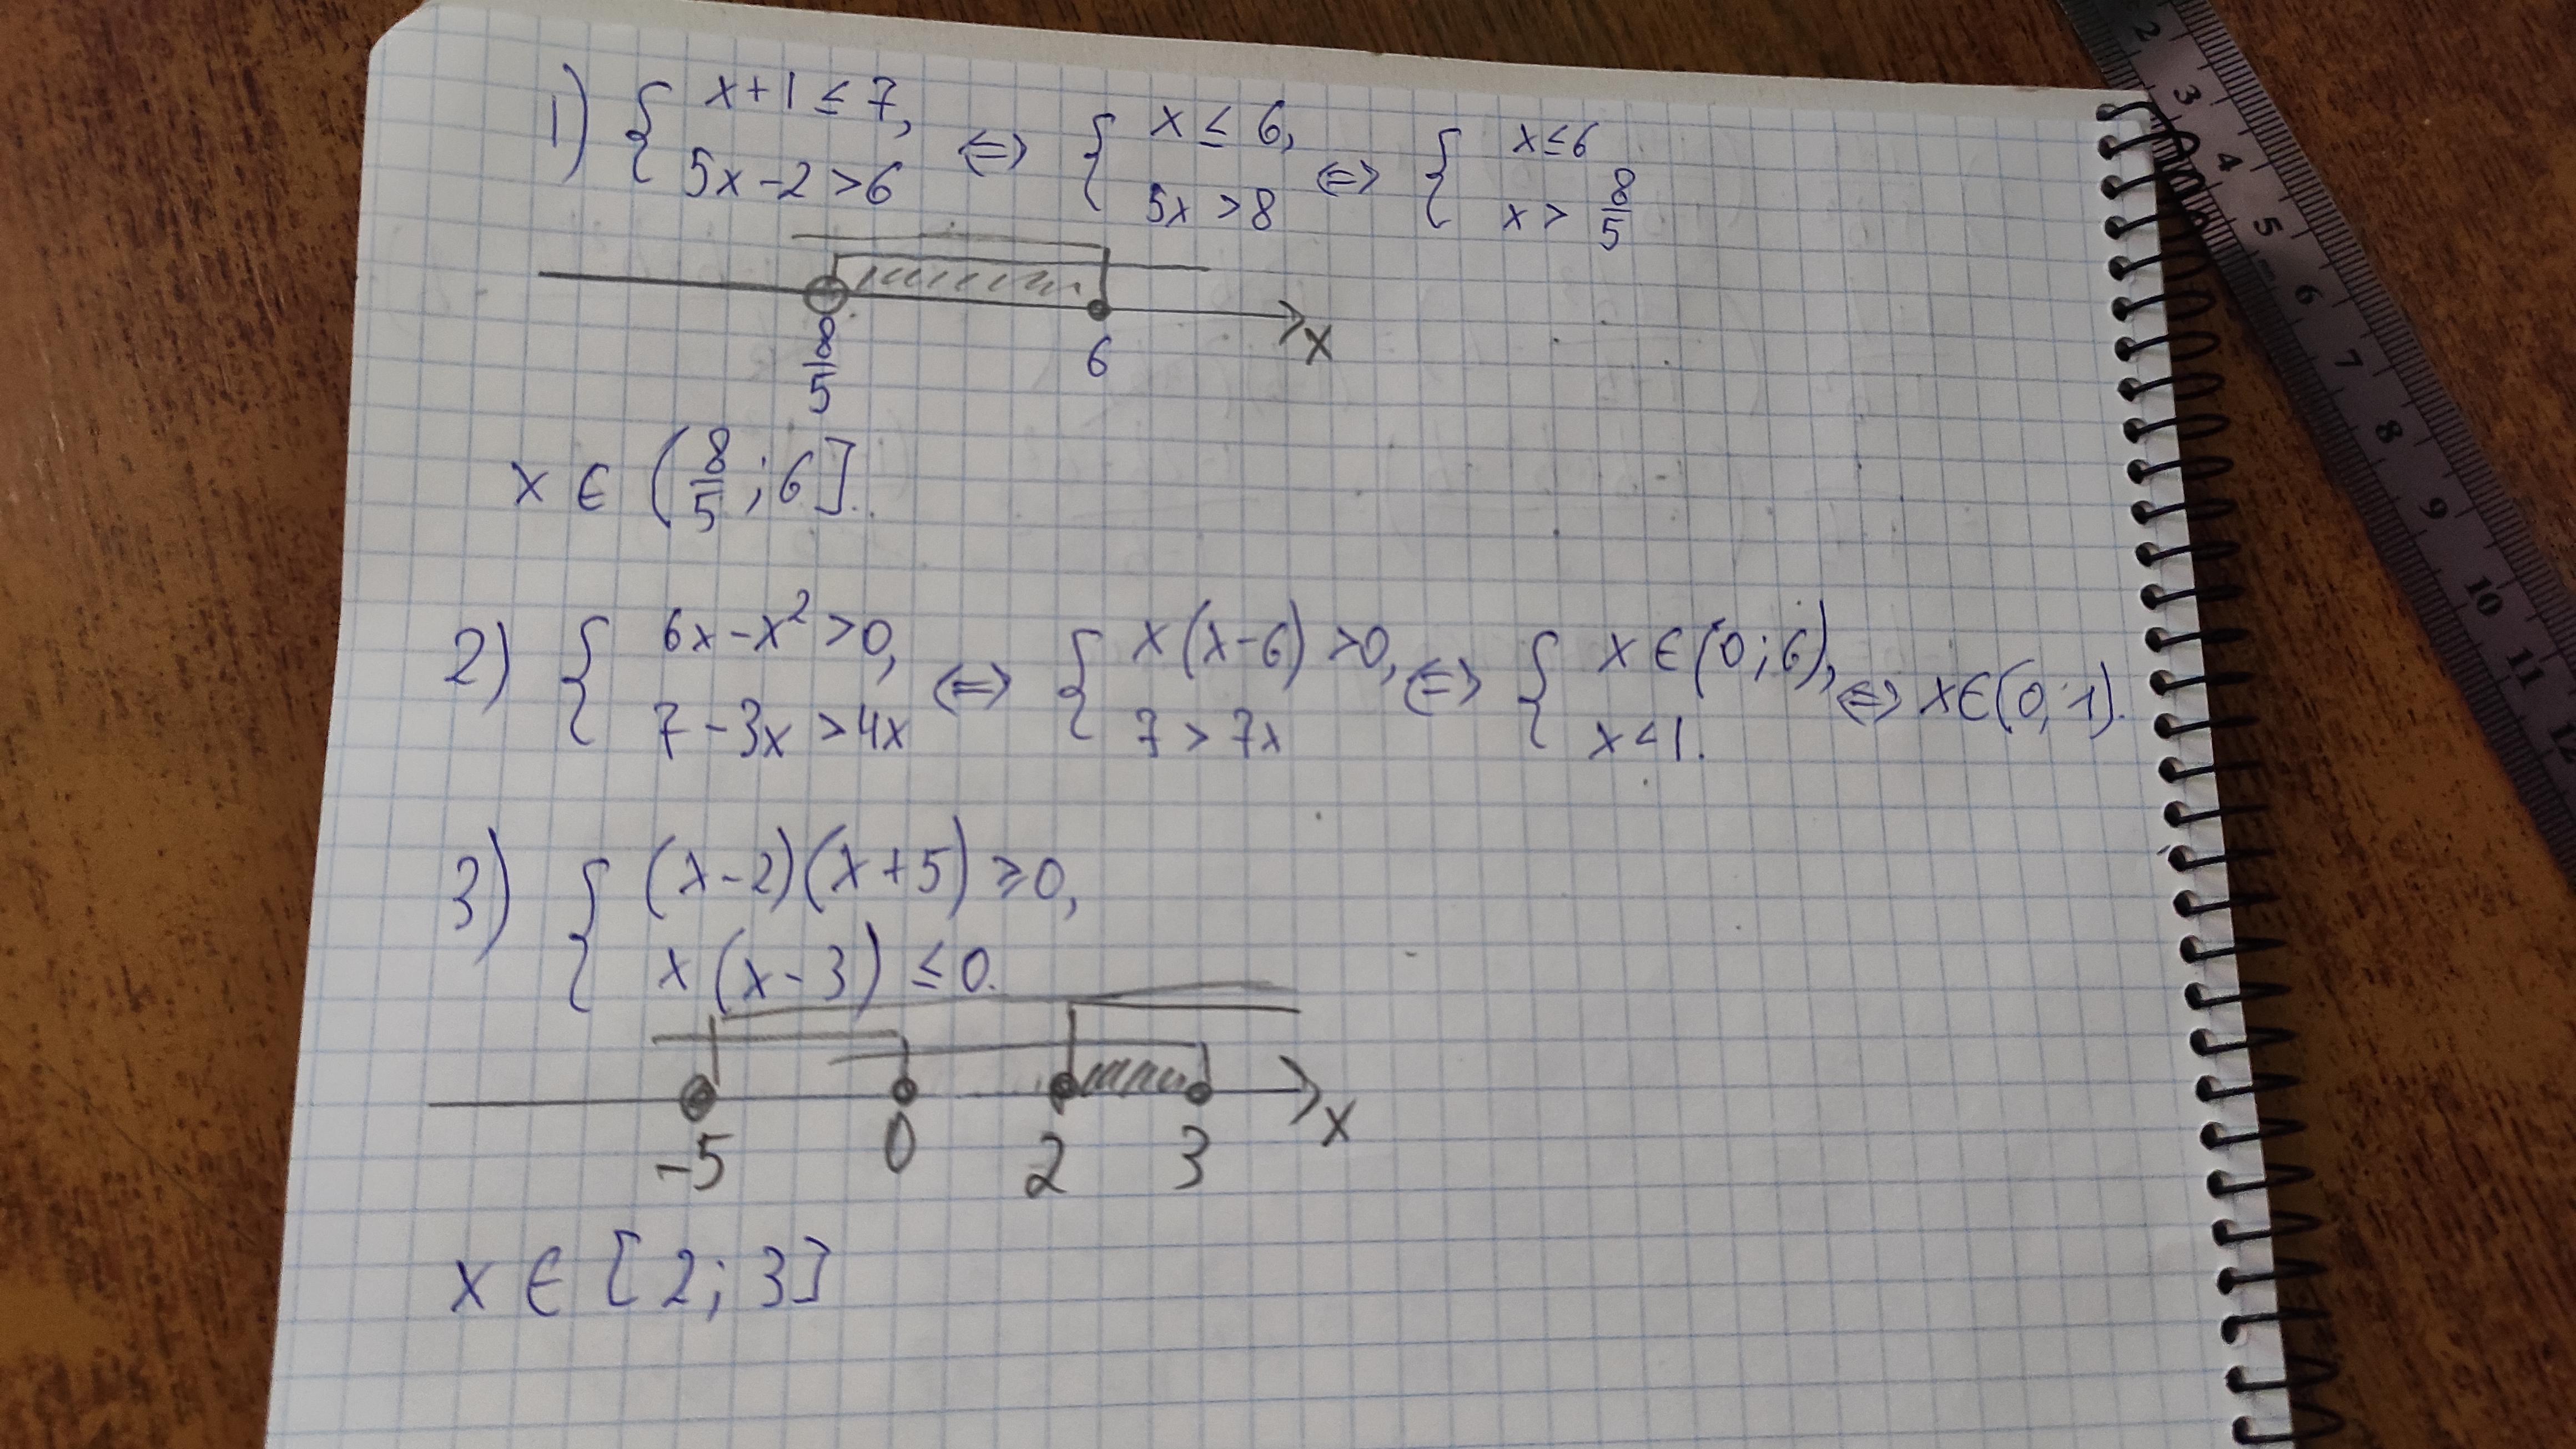 1) { x+1 ≤ 7, 5x-2 > 6 <=> { x ≤ 6, 5x > 8 <=> { x ≤ 6 x > 8/5
8/5 6 x
x ∈ (8/5; 6].
2) { 6x - x² > 0, 7 - 3x > 4x <=> { x(x-6) > 0, 7 > 7x <=> { x ∈ (0; 6), x < 1. <=> x ∈ (0; 1).
3) { (x-2)(x+5) ≥ 0, x(x-3) ≤ 0.
-5 0 2 3 x
x ∈ [2; 3]
2 3 4 5 6 7 8 9 10 11 12